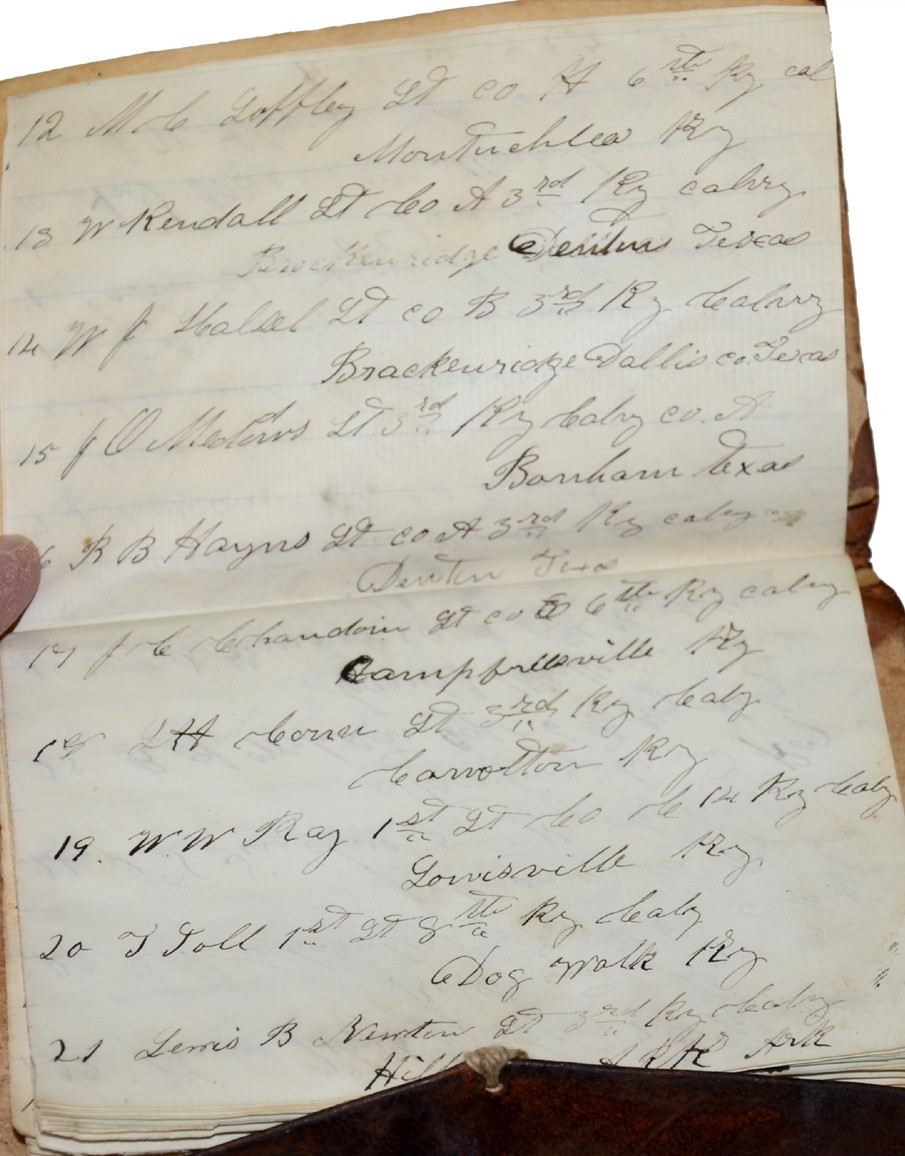 12 M C Loffley Lt co H 6th Ky cal
Montuchlea Ky
13 W Kendall Lt Co A 3rd Ky calvry
Brackenridge Denton Texas
14 W J Halsel Lt co B 3rd Ky Calvry
Brackenridge Dallis co Texas
15 J O Medows Lt 3rd Ky Calvy co. A
Bonham Texas
6 R B Hayns Lt co A 3rd Ky calvy
Denton Texas
17 J C Chaudoin Lt co 6th Ky calvry
Campfellsville Ky
18 L H Corner Lt 3rd Ky Calvy
Carrolton Ky
19. W. W Ray 1st Lt Co C 14 Ky Calvy
Lowisville Ky.
20 T Toll 1st Lt 8th Ky Calvy
Dog Walk Ky
21 Lewis B Newton Lt 3rd Ky Calvry
Hill Ark